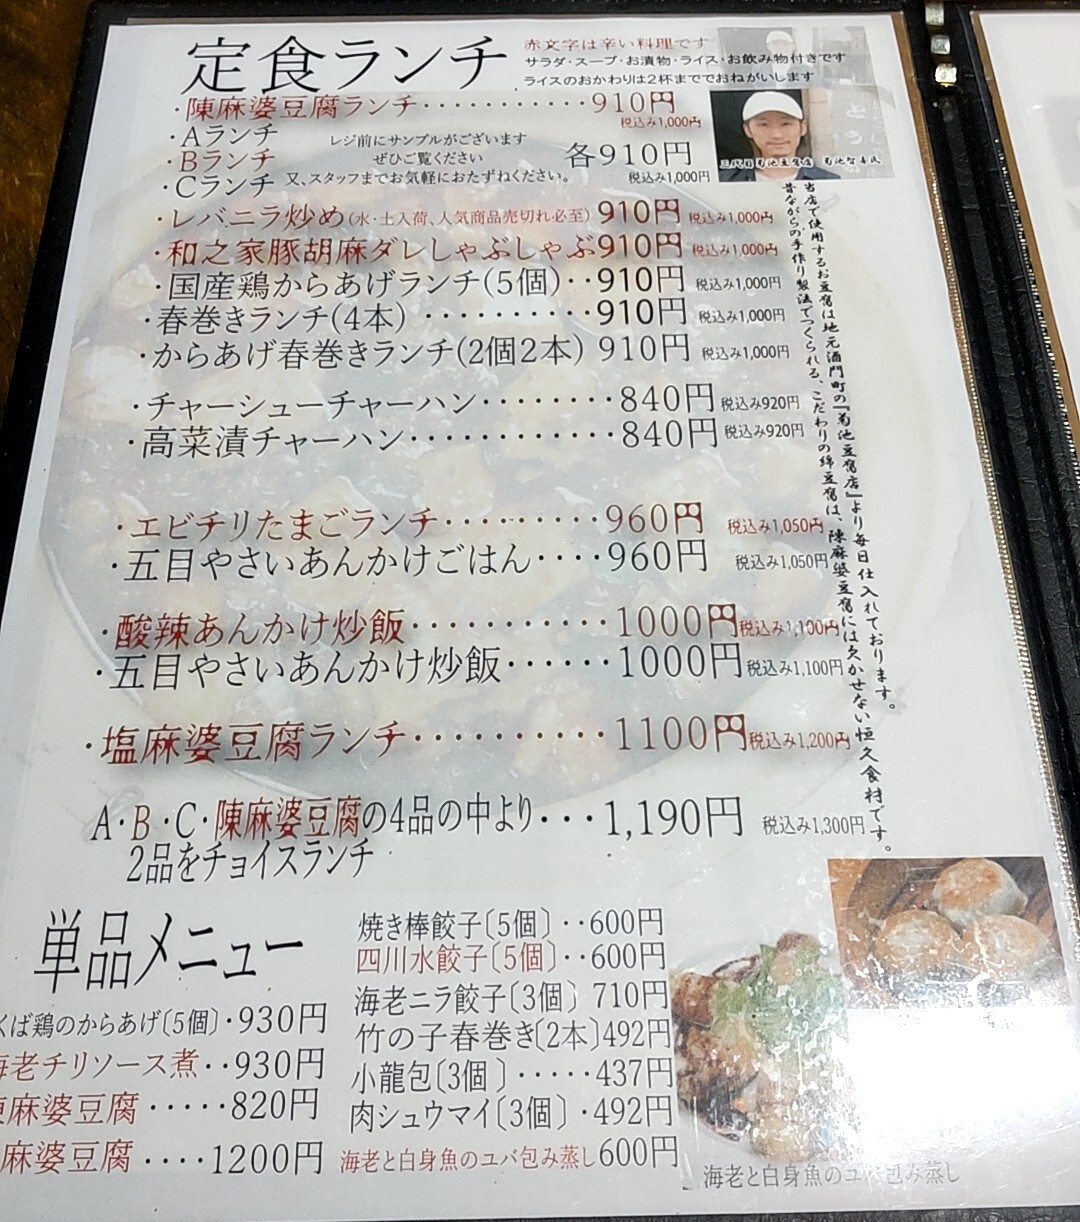 定食ランチ
赤文字は辛い料理です
サラダ・スープ・お漬物・ライス・お飲み物付きです
ライスのおかわりは2杯まででおねがいします
・陳麻婆豆腐ランチ・・・・・・・・・・・910円
税込み1,000円
・Aランチ
・Bランチ
・Cランチ
レジ前にサンプルがございます
ぜひご覧ください
又、スタッフまでお気軽におたずねください。
各910円
税込み1,000円
三代目菊池豆腐店 菊池智喜氏
・レバニラ炒め(水・土入荷、人気商品売切れ必至) 910円 税込み1,000円
・和之家豚胡麻ダレしゃぶしゃぶ910円 税込み1,000円
・国産鶏からあげランチ(5個)・・910円 税込み1,000円
・春巻きランチ(4本)・・・・・・・・・・910円 税込み1,000円
・からあげ春巻きランチ(2個2本) 910円 税込み1,000円
・チャーシューチャーハン・・・・・・・・840円 税込み920円
・高菜漬チャーハン・・・・・・・・・・・・840円 税込み920円
・エビチリたまごランチ・・・・・・・・・960円 税込み1,050円
・五目やさいあんかけごはん・・・・960円 税込み1,050円
・酸辣あんかけ炒飯・・・・・・・・・・・1000円 税込み1,100円
・五目やさいあんかけ炒飯・・・・・・1000円 税込み1,100円
・塩麻婆豆腐ランチ・・・・・・・・・・・1100円 税込み1,200円
A・B・C・陳麻婆豆腐の4品の中より・・・1,190円 税込み1,300円
2品をチョイスランチ
当店で使用するお豆腐は地元酒門町の『菊池豆腐店』より毎日仕入れております。
昔ながらの手作り製法でつくられる、こだわりの綿豆腐は、陳麻婆豆腐には欠かせない恒久食材です。
単品メニュー
くば鶏のからあげ〔5個〕・930円
海老チリソース煮・・930円
陳麻婆豆腐・・・・・820円
麻婆豆腐・・・・1200円
焼き棒餃子〔5個〕・・600円
四川水餃子〔5個〕・・600円
海老ニラ餃子〔3個〕710円
竹の子春巻き〔2本〕492円
小龍包〔3個〕・・・・・437円
肉シュウマイ〔3個〕・492円
海老と白身魚のユバ包み蒸し600円
海老と白身魚のユバ包み蒸し